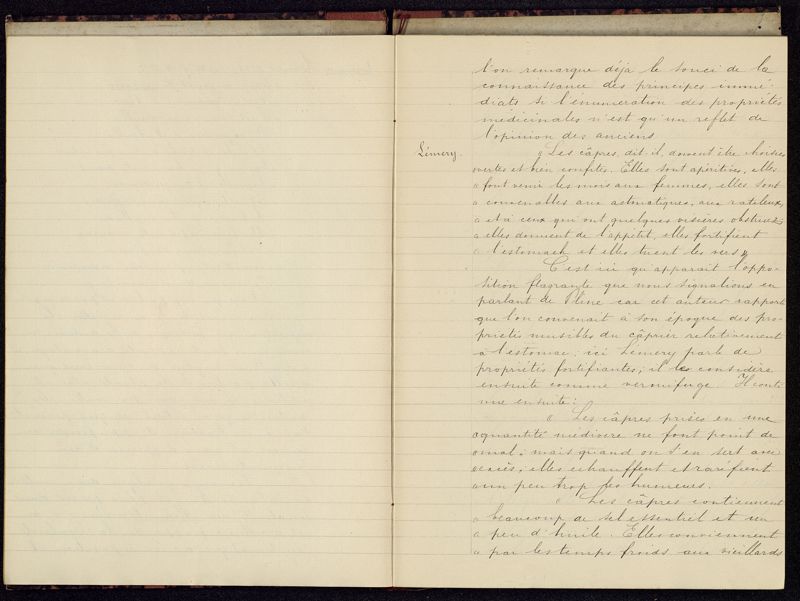 l'on remarque déjà le souci de la
connaissance des principes immé-
diats si l'énumération des propriétés
médicinales n'est qu'un reflet de
l'opinion des anciens
Lémery. « Les câpres, dit-il, doivent être choisies
vertes et bien confites. Elles sont apéritives, elles
« font venir les mois aux femmes, elles sont
« convenables aux astmatiques, aux rateleux,
« et à ceux qui ont quelques viscères obstrués
« elles donnent de l'appétit, elles fortifient
« l'estomach et elles tuent les vers »
C'est ici qu'apparait l'oppo-
sition flagrante que nous signations en
parlant de Pline car cet auteur rapport
que l'on convenait à son époque des pro-
priétés nuisibles du câprier relativement
à l'estomac; ici Lémery parle de
propriétés fortifiantes; il les considère
ensuite comme vermifuge. Il conti-
nue ensuite:
« Les câpres prises en une
« quantité médiocre ne font point de
« mal; mais quand on s'en sert avec
« excès, elles echauffent et raréfient
« un peu trop les humeurs.
« Les câpres contiennent
« beaucoup de sel essentiel et un
« peu d'huile. Elles conviennent
« par les temps froids aux vieillards